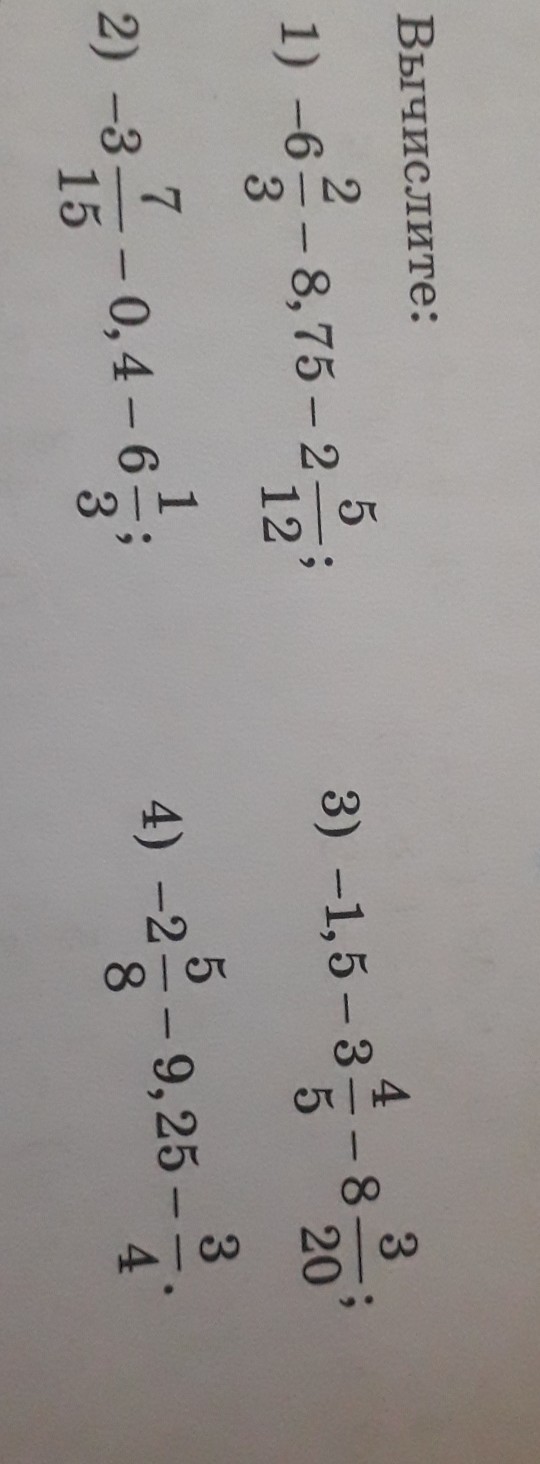 Вычислите:
1) −6 2/3 − 8,75 − 2 5/12;
2) −3 7/15 − 0,4 − 6 1/3;
3) −1,5 − 3 4/5 − 8 3/20;
4) −2 5/8 − 9,25 − 3/4.